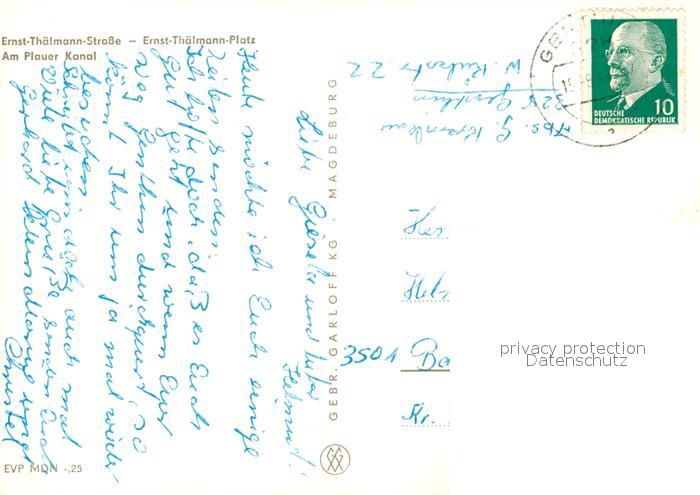 Ernst-Thälmann-Straße – Ernst-Thälmann-Platz
Am Plauer Kanal
Liebe Gisela und lieber
Helmut!
Heute möchte ich Euch einige
Zeilen senden.
Ich hoffe doch, daß es Euch
gut geht und wenn Euer
Weg Genthin durchquert, so
könnt Ihr uns ja mal wieder
besuchen.
Schreibt uns doch auch mal
Viele liebe Grüße senden Euch
Gerhard und
Christel
GEBR. GARLOFF KG · MAGDEBURG
EVP MDN -,25
Abs. G.
328 Genthin
W. 22
GENTHIN
10
DEUTSCHE
DEMOKRATISCHE REPUBLIK
Her
Hel
3501 Be
Kr.
privacy protection
Datenschutz